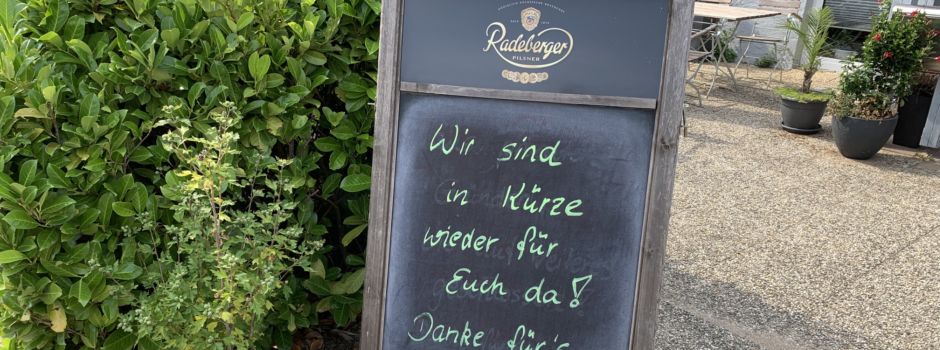 Radeberger
PILSNER
Wir sind
in Kürze
wieder für
Euch da!
Danke für's